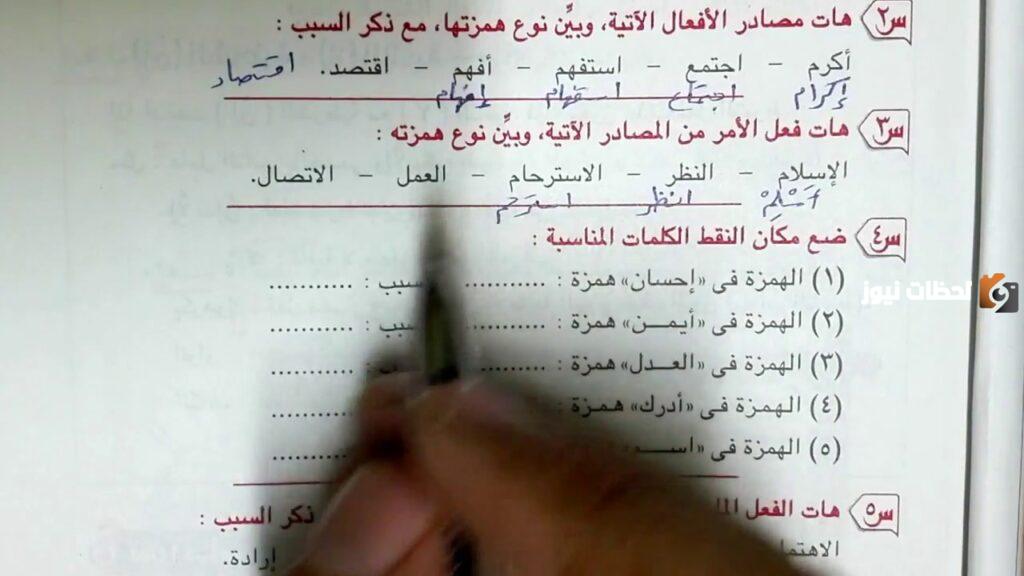 س٢ هات مصادر الأفعال الآتية، وبيِّن نوع همزتها، مع ذكر السبب :
أكرم – اجتمع – استفهم – أفهم – اقتصد. اقتصاد
إكرام اجتماع استفهام إفهام
س٣ هات فعل الأمر من المصادر الآتية، وبيِّن نوع همزته :
الإسلام – النظر – الاسترحام – العمل – الاتصال.
أَسْلِمْ انظر استرحم
س٤ ضع مكان النقط الكلمات المناسبة :
(١) الهمزة فى «إحسان» همزة : ........... السبب : ...........
(٢) الهمزة فى «أيمـن» همزة : ........... : ...........
(٣) الهمزة فى «العـدل» همزة : ........... ...........
(٤) الهمزة فى «أدرك» همزة : ...........
(٥) الهمزة فى ...........
س٥ هات الفعل ذكر السبب :
إرادة.
لحظات نيوز